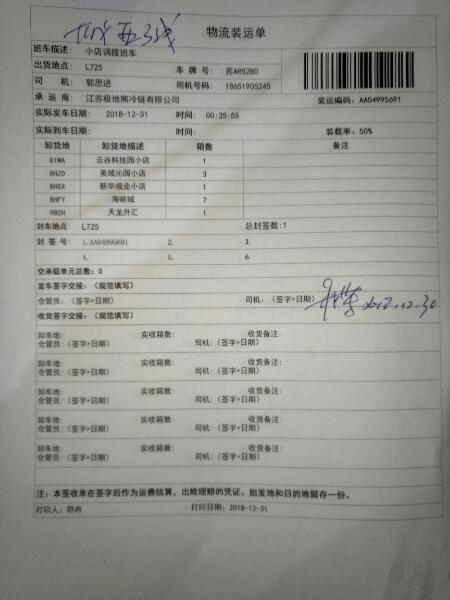 物流装运单
班车描述: 小店调拨班车
出货地点: L725 车 牌 号: 苏AR52B0
司 机: 郭思进 司机号码: 18651905245
承 运 商: 江苏极地熊冷链有限公司 装运编码: AA04995691
实际发车日期: 2018-12-31 时间: 00:35:55
实际到车日期: 时间: 装载率: 50%
卸货地 卸货地描述 箱数 备注
BIWA 云谷科技园小店 1
8HZD 美域沁园小店 3
8HSX 新华报业小店 1
8HFY 海峡城 7
980H 天龙升汇 1
封车地点: L725 总封签数:1
封 签 号: 1.AA04995691 2. 3.
4. 5. 6.
空承载单元总数: 0
发车签字交接: (规范填写)
仓管员: (签字+日期) 司机: (签字+日期) 2018.12.30
收货签字交接: (规范填写)
卸车地: 实收箱数: 收货备注:
仓管员: (签字+日期) 司机: (签字+日期)
卸车地: 实收箱数: 收货备注:
仓管员: (签字+日期) 司机: (签字+日期)
卸车地: 实收箱数: 收货备注:
仓管员: (签字+日期) 司机: (签字+日期)
卸车地: 实收箱数: 收货备注:
仓管员: (签字+日期) 司机: (签字+日期)
卸车地: 实收箱数: 收货备注:
仓管员: (签字+日期) 司机: (签字+日期)
注: 本签收单在签字后作为运费结算, 出险理赔的凭证。始发地和目的地留存一份。
打印人: 符冉 打印日期: 2018-12-31